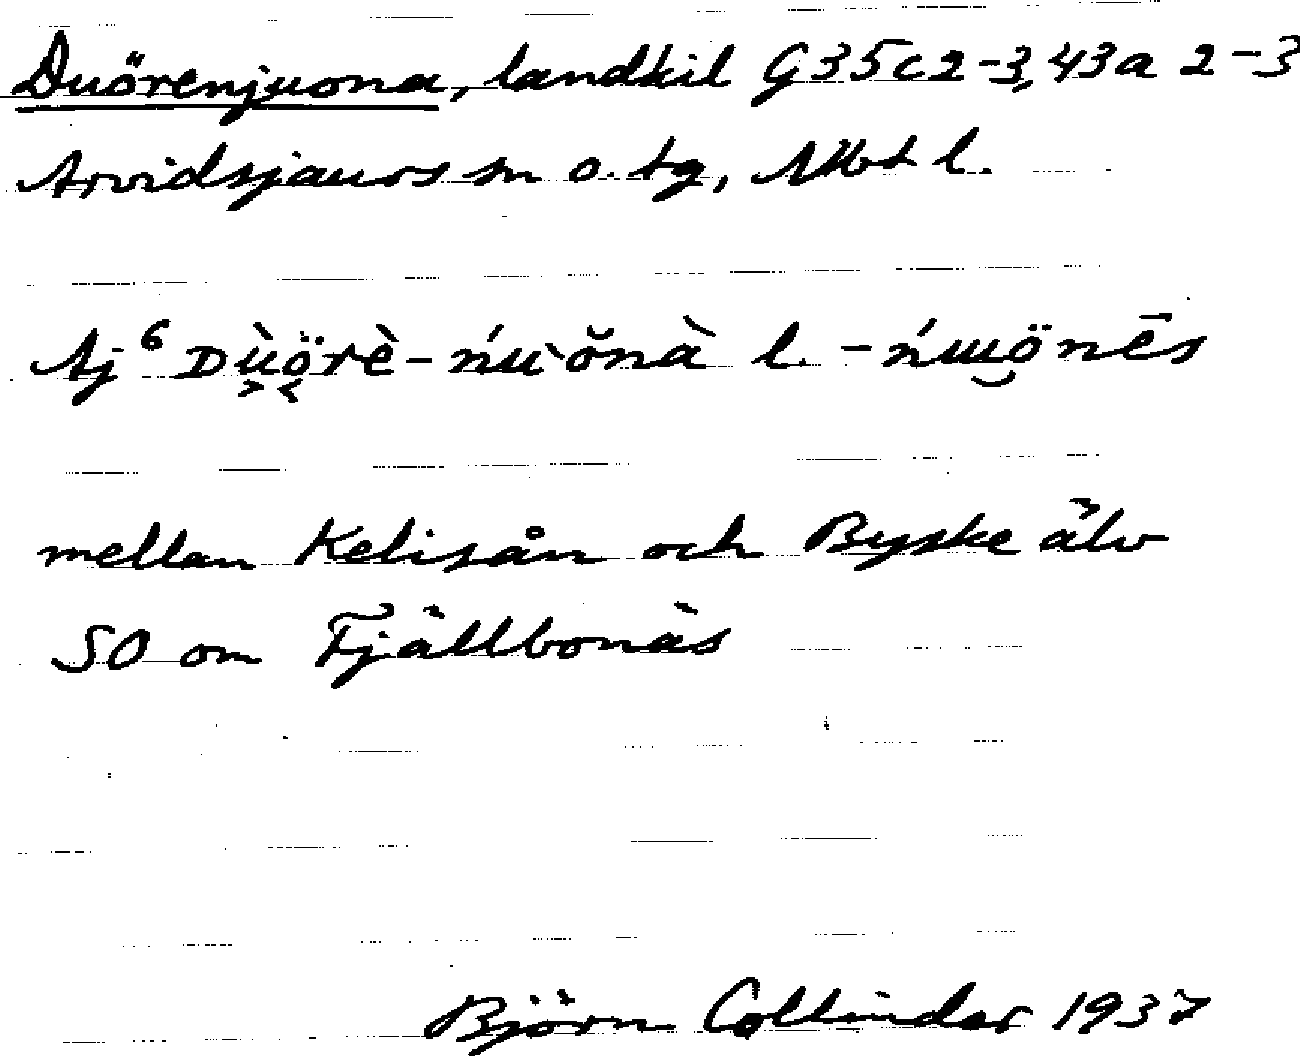 Duörenjuona, landkil G35c2-3, 43a 2-3
Arvidsjaurs sn o. tg, Nbt l.
Aj⁶ Dù̬ö̬rè-ńùŏnà l. -ńɯ̯önēs
mellan Kelisån och Byske älv
SO om Fjällbonäs
Björn Collinder 1937